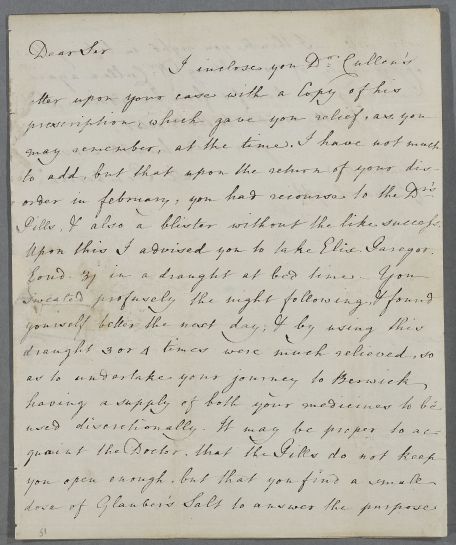 Dear Sir
I inclose you Dr. Cullen's
letter upon your case with a Copy of his
prescription, which gave you relief, as you
may remember, at the time. I have not much
to add, but that upon the return of your dis-
order in february, you had recourse to the Dr's
Pills, & also a blister without the like success.
Upon this I advised you to take Elix. Paregor.
Lond. ʒj in a draught at bed time. You
sweated profusely the night following, & found
yourself better the next day; & by using this
draught 3 or 4 times were much relieved, so
as to undertake your journey to Berwick
having a supply of both your medicines to be
used discretionally. It may be proper to ac-
quaint the Doctor, that the Pills do not keep
you open enough, but that you find a small
dose of Glauber's Salt to answer the purpose
51